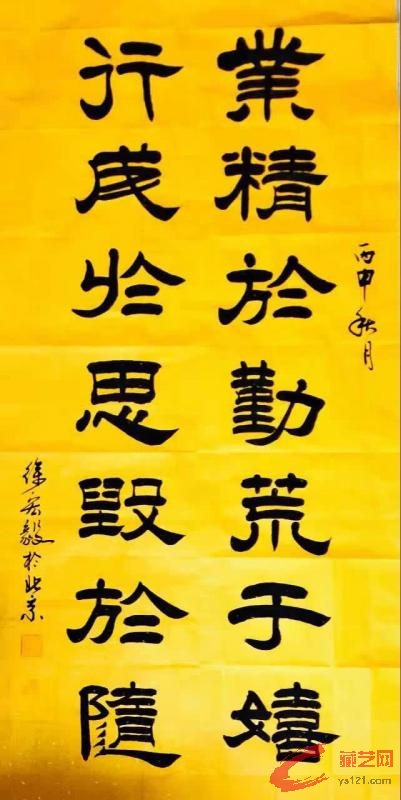 丙申秋月
業精於勤荒于嬉
行成於思毀於隨
徐宏毅於北京
藏艺网
ys121.com